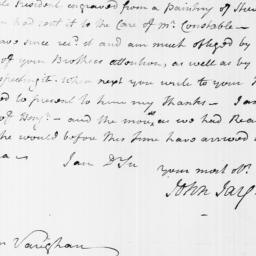 President engraved from a Painting of
had sent it to the Care of Mr. Constable—
since recd. it and am much obliged by
of your Brothers attention, as well as by
it. When next you write to your
to present to him my Thanks— I am
of Hony.— and the more as we had Rea
he would before this time have arrived
I am Dr Sir
your most obt.
John Jay
Vaughan